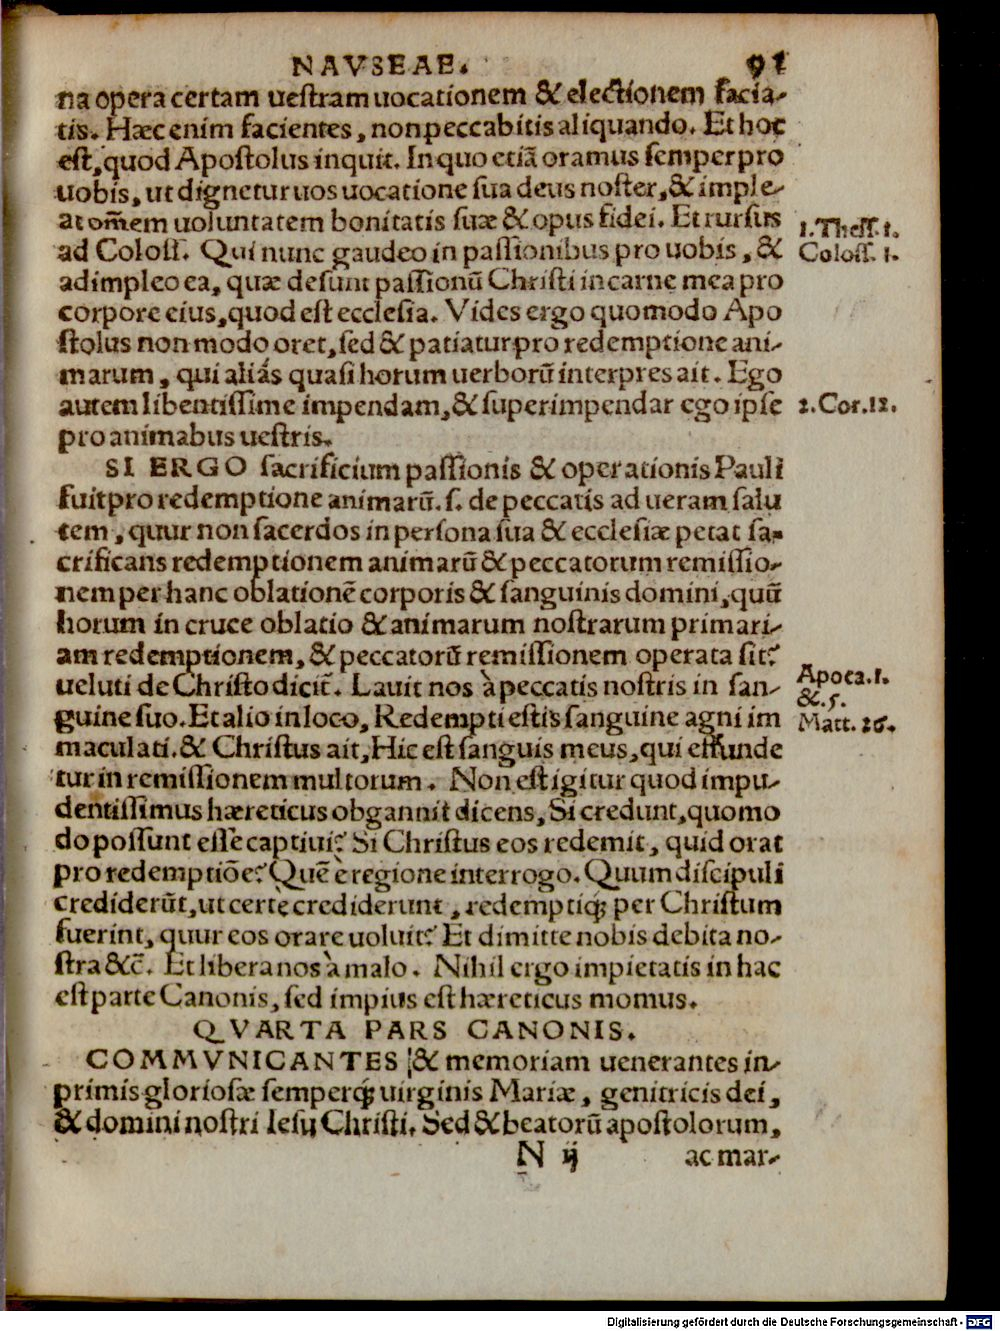 NAVSEAE. 91
na opera certam uestram uocationem & electionem facia-
tis. Hæc enim facientes, non peccabitis aliquando. Et hoc
est, quod Apostolus inquit. In quo etiā oramus semper pro
uobis, ut dignetur uos uocatione sua deus noster, & imple-
at om̄em uoluntatem bonitatis suæ & opus fidei. Et rursus
1. Thess. 1.
ad Coloss. Qui nunc gaudeo in passionibus pro uobis, &
Coloss. 1.
adimpleo ea, quæ desunt passionū Christi in carne mea pro
corpore eius, quod est ecclesia. Vides ergo quomodo Apo
stolus non modo oret, sed & patiatur pro redemptione ani-
marum, qui aliás quasi horum uerborū interpres ait. Ego
autem libentissime impendam, & superimpendar ego ipse
2. Cor. 12.
pro animabus uestris.
SI ERGO sacrificium passionis & operationis Pauli
fuit pro redemptione animarū. s. de peccatis ad ueram salu
tem, quur non sacerdos in persona sua & ecclesiæ petat sa-
crificans redemptionem animarū & peccatorum remissio-
nem per hanc oblationē corporis & sanguinis domini, quū
horum in cruce oblatio & animarum nostrarum primari-
am redemptionem, & peccatorū remissionem operata sit?
ueluti de Christo dicit̄. Lauit nos à peccatis nostris in san-
Apoca. 1.
& . 5.
guine suo. Et alio in loco, Redempti estis sanguine agni im
Matt. 26.
maculati. & Christus ait, Hic est sanguis meus, qui effunde
tur in remissionem multorum. Non est igitur quod impu-
dentissimus hæreticus obgannit dicens, Si credunt, quomo
do possunt esse captiui? Si Christus eos redemit, quid orat
pro redemptiōe? Quē è regione interrogo. Quum discipuli
crediderūt, ut certè crediderunt, redemptiq́; per Christum
fuerint, quur eos orare uoluit? Et dimitte nobis debita no-
stra &c̄. Et libera nos à malo. Nihil ergo impietatis in hac
est parte Canonis, sed impius est hæreticus momus.
QVARTA PARS CANONIS.
COMMVNICANTES & memoriam uenerantes in-
primis gloriosæ semperq́; uirginis Mariæ, genitricis dei,
& domini nostri Iesu Christi. Sed & beatorū apostolorum,
N ij ac mar-
Digitalisierung gefördert durch die Deutsche Forschungsgemeinschaft - DFG